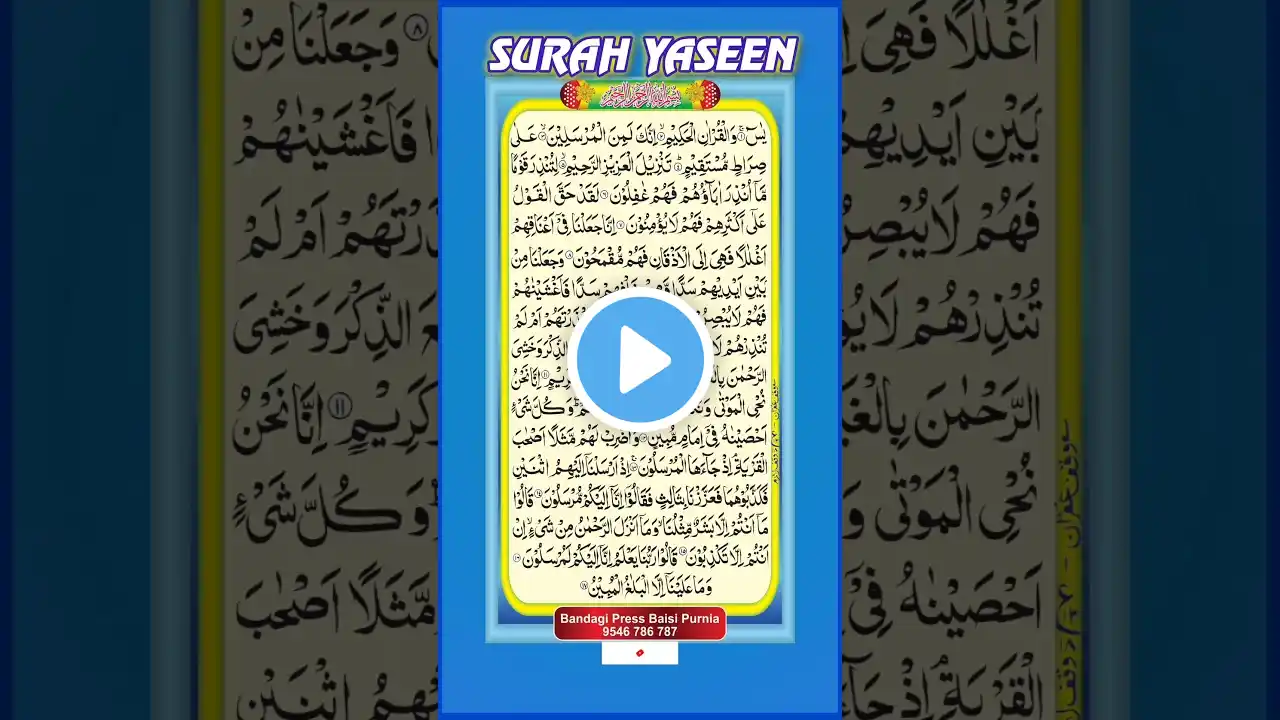 SURAH YASEEN
بسم الله الرحمن الرحيم
يٰسٓ ۚ﴿۱﴾ وَالْقُرْاٰنِ الْحَكِيْمِ ۙ﴿۲﴾ اِنَّكَ لَمِنَ الْمُرْسَلِيْنَ ۙ﴿۳﴾ عَلٰى
صِرَاطٍ مُّسْتَقِيْمٍ ؕ﴿۴﴾ تَنْزِيْلَ الْعَزِيْزِ الرَّحِيْمِ ۙ﴿۵﴾ لِتُنْذِرَ قَوْمًا
مَّاۤ اُنْذِرَ اٰبَآؤُهُمْ فَهُمْ غٰفِلُوْنَ ﴿۶﴾ لَقَدْ حَقَّ الْقَوْلُ
عَلٰۤى اَكْثَرِهِمْ فَهُمْ لَا يُؤْمِنُوْنَ ﴿۷﴾ اِنَّا جَعَلْنَا فِيْۤ اَعْنَاقِهِمْ
اَغْلٰلًا فَهِىَ اِلَى الْاَذْقَانِ فَهُمْ مُّقْمَحُوْنَ ﴿۸﴾ وَجَعَلْنَا مِنْ
بَيْنِ اَيْدِيْهِمْ سَدًّا فَاَغْشَيْنٰهُمْ
فَهُمْ لَا يُبْصِرُ اَمْ لَمْ
تُنْذِرْهُمْ لَا الذِّكْرَ وَخَشِىَ
الرَّحْمٰنَ بِالْغَ كَرِيْمٍ ﴿۱۱﴾ اِنَّا نَحْنُ
نُحْىِ الْمَوْتٰى وَكُلَّ شَىْءٍ
اَحْصَيْنٰهُ فِيْۤ اِمَامٍ مُّبِيْنٍ ﴿۱۲﴾ وَاضْرِبْ لَهُمْ مَّثَلًا اَصْحٰبَ
الْقَرْيَةِ ۘ اِذْ جَآءَهَا الْمُرْسَلُوْنَ ۚ﴿۱۳﴾ اِذْ اَرْسَلْنَاۤ اِلَيْهِمُ اثْنَيْنِ
فَكَذَّبُوْهُمَا فَعَزَّزْنَا بِثَالِثٍ فَقَالُوْۤا اِنَّاۤ اِلَيْكُمْ مُّرْسَلُوْنَ ﴿۱۴﴾ قَالُوْا
مَاۤ اَنْتُمْ اِلَّا بَشَرٌ مِّثْلُنَا ۙ وَمَاۤ اَنْزَلَ الرَّحْمٰنُ مِنْ شَىْءٍ ۙ اِنْ
اَنْتُمْ اِلَّا تَكْذِبُوْنَ ﴿۱۵﴾ قَالُوْا رَبُّنَا يَعْلَمُ اِنَّاۤ اِلَيْكُمْ لَمُرْسَلُوْنَ ﴿۱۶﴾
وَمَا عَلَيْنَاۤ اِلَّا الْبَلٰغُ الْمُبِيْنُ ﴿۱۷﴾
Bandagi Press Baisi Purnia
9546 786 787